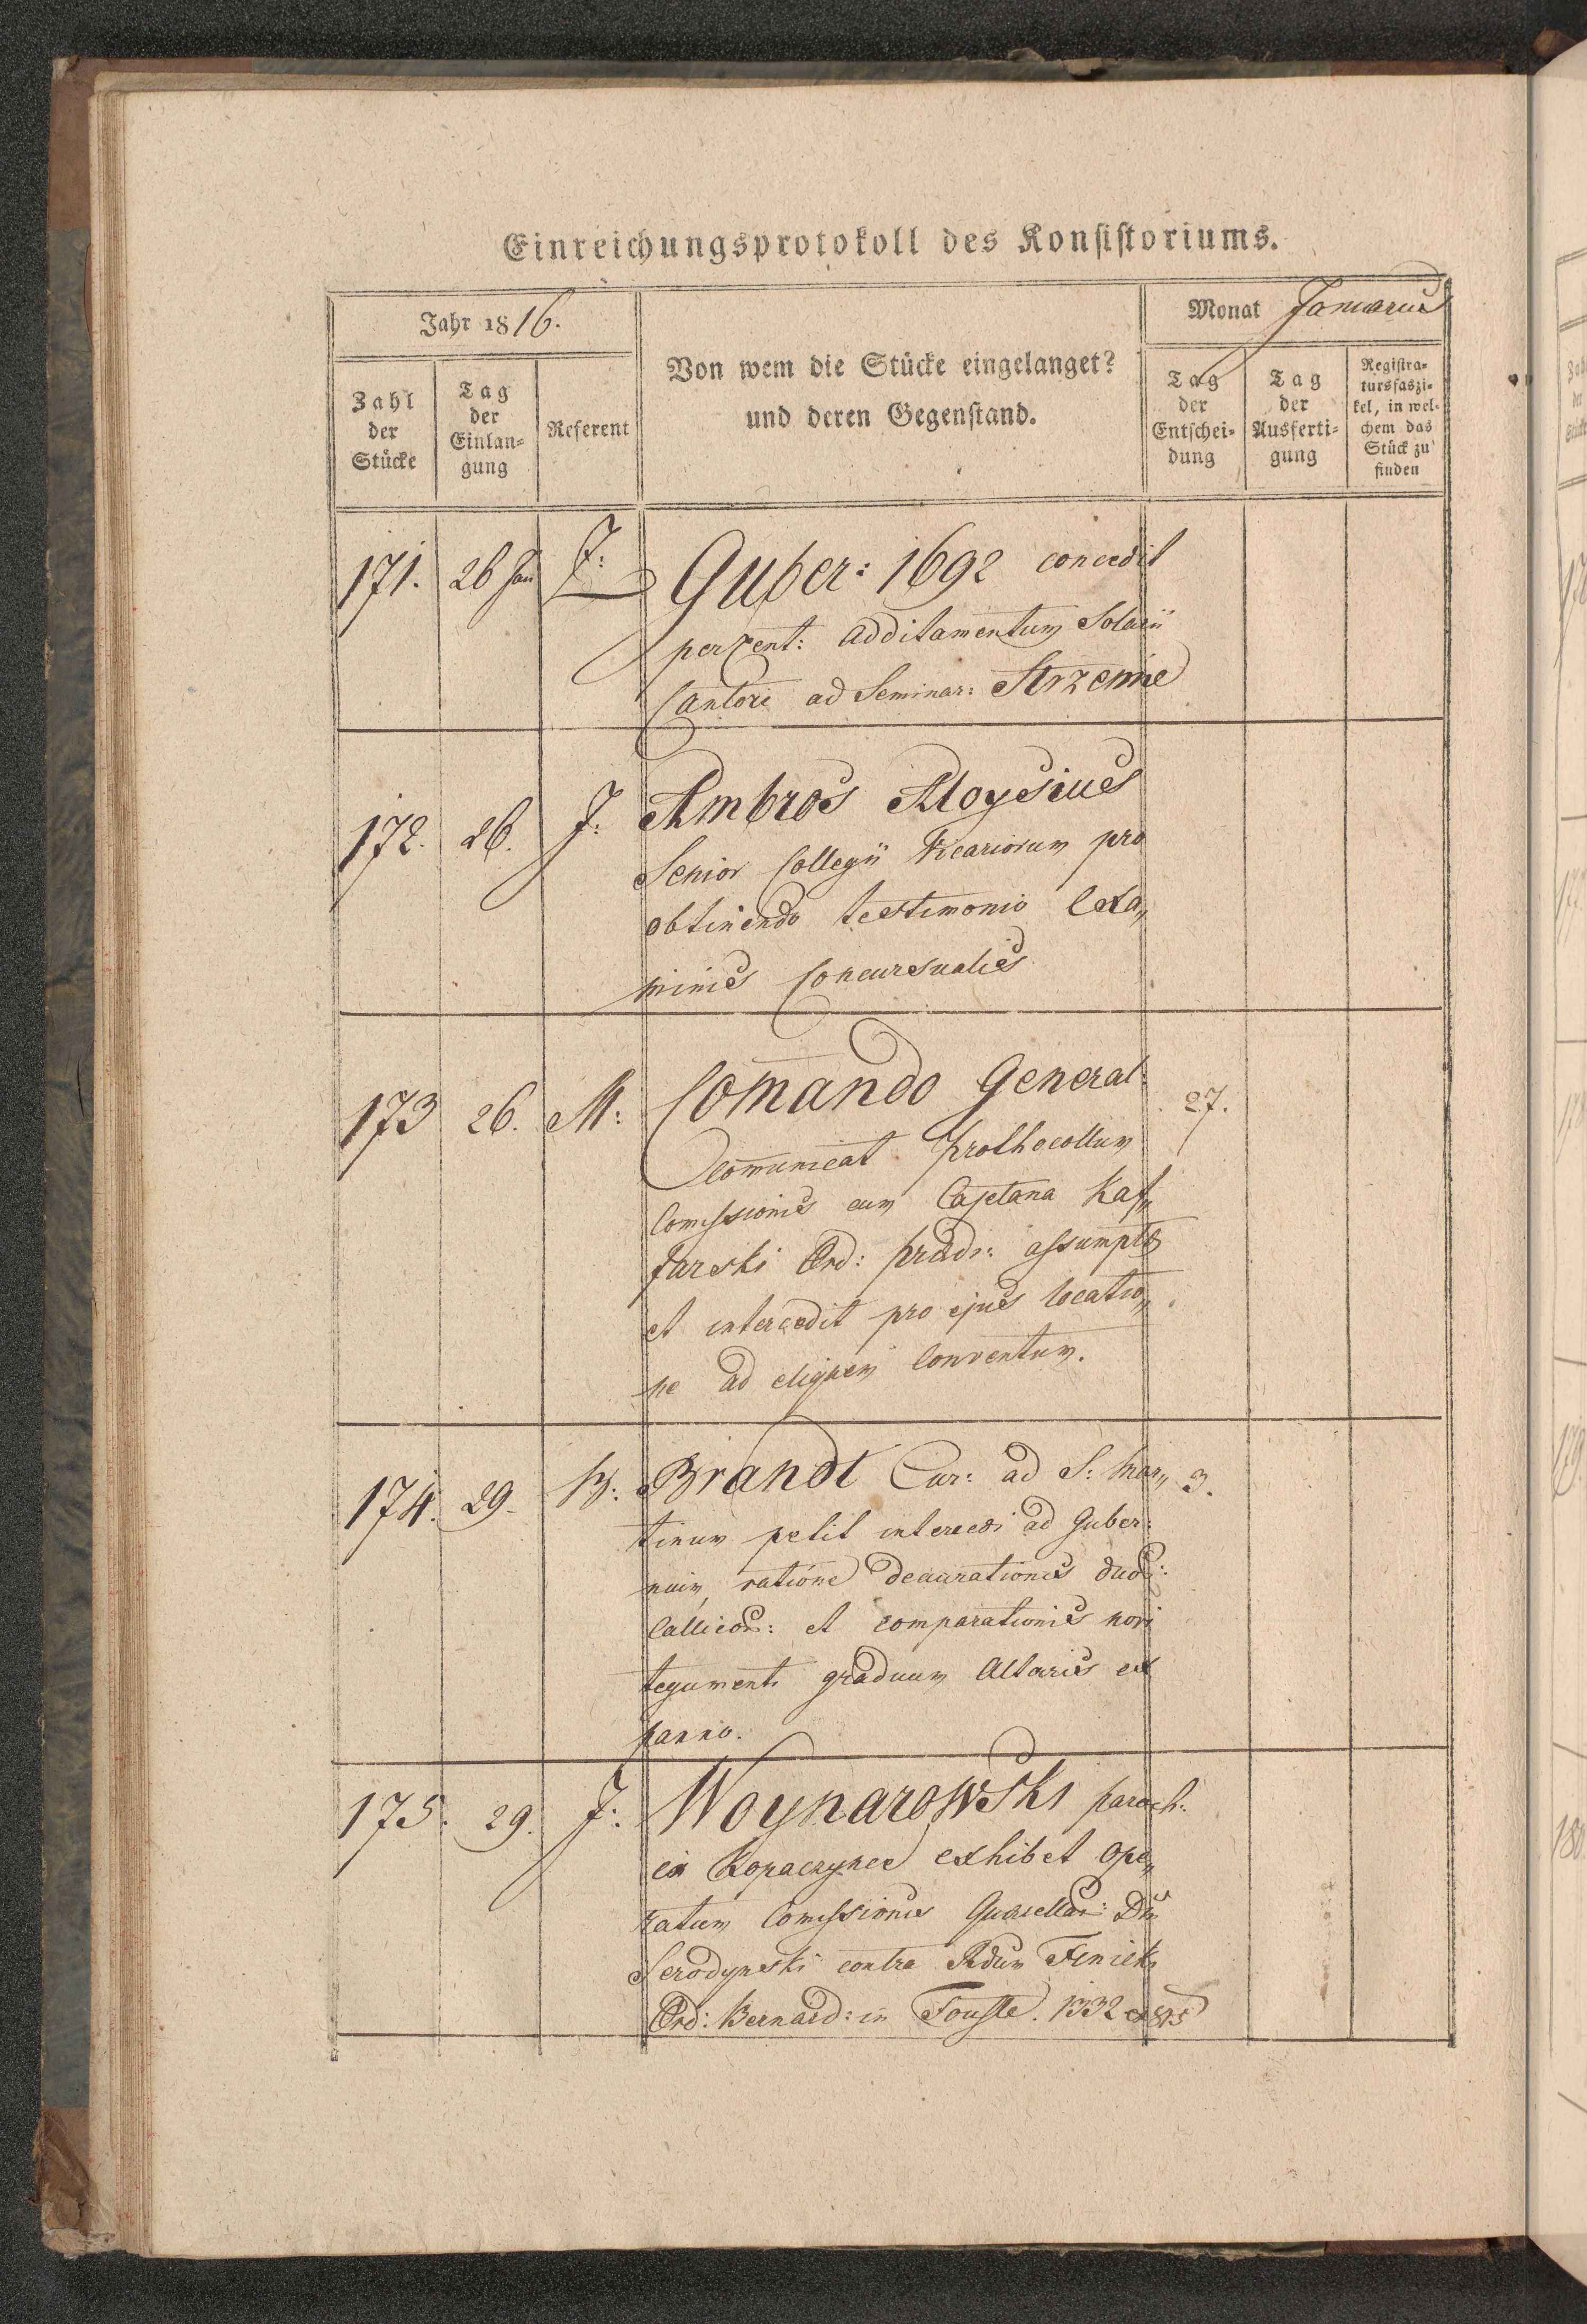 Einreichungsprotokoll des Konsistoriums.
Jahr 1816.
Monat Januarius
Zahl der Stücke
Tag der Einlan-gung
Referent
Von wem die Stücke eingelanget?
und deren Gegenstand.
Tag der Entschei-dung
Tag der Ausferti-gung
Registra-tursfaszi-kel, in wel-chem das Stück zu finden
171. 26 Jan J: Guber: 1692 concedit
percent: additamentum Solarii
Cantori ad Seminar: Strzemie
172. 26. J: Ambros Aloysius
Senior Collegii Vicariorum pro
obtinendo testimonio Exa„
minis Concursualis
173 26. M: Comando General: 27.
Communicat Prothocollum
Comissionis cum Cajetana Kaf„
farski Ord: Praed: assumpto
et intercedit pro ejus locatio„
ne ad aliquem Conventum.
174. 29. B: Brandt Cur: ad S: Mar„ 3.
tinum petit intercedi ad Guber:
nium, ratione deaurationis
Callicor: et comparationis novi
tegumenti graduum Altaris ex
panno.
175. 29. J: Woynarowski paroch:
in Kopaczynce exhibet Ope„
ratum Comissionis Querellar: Dni
contra Rdum
Ord: Bernard: in Fouste. 1332 ex 815